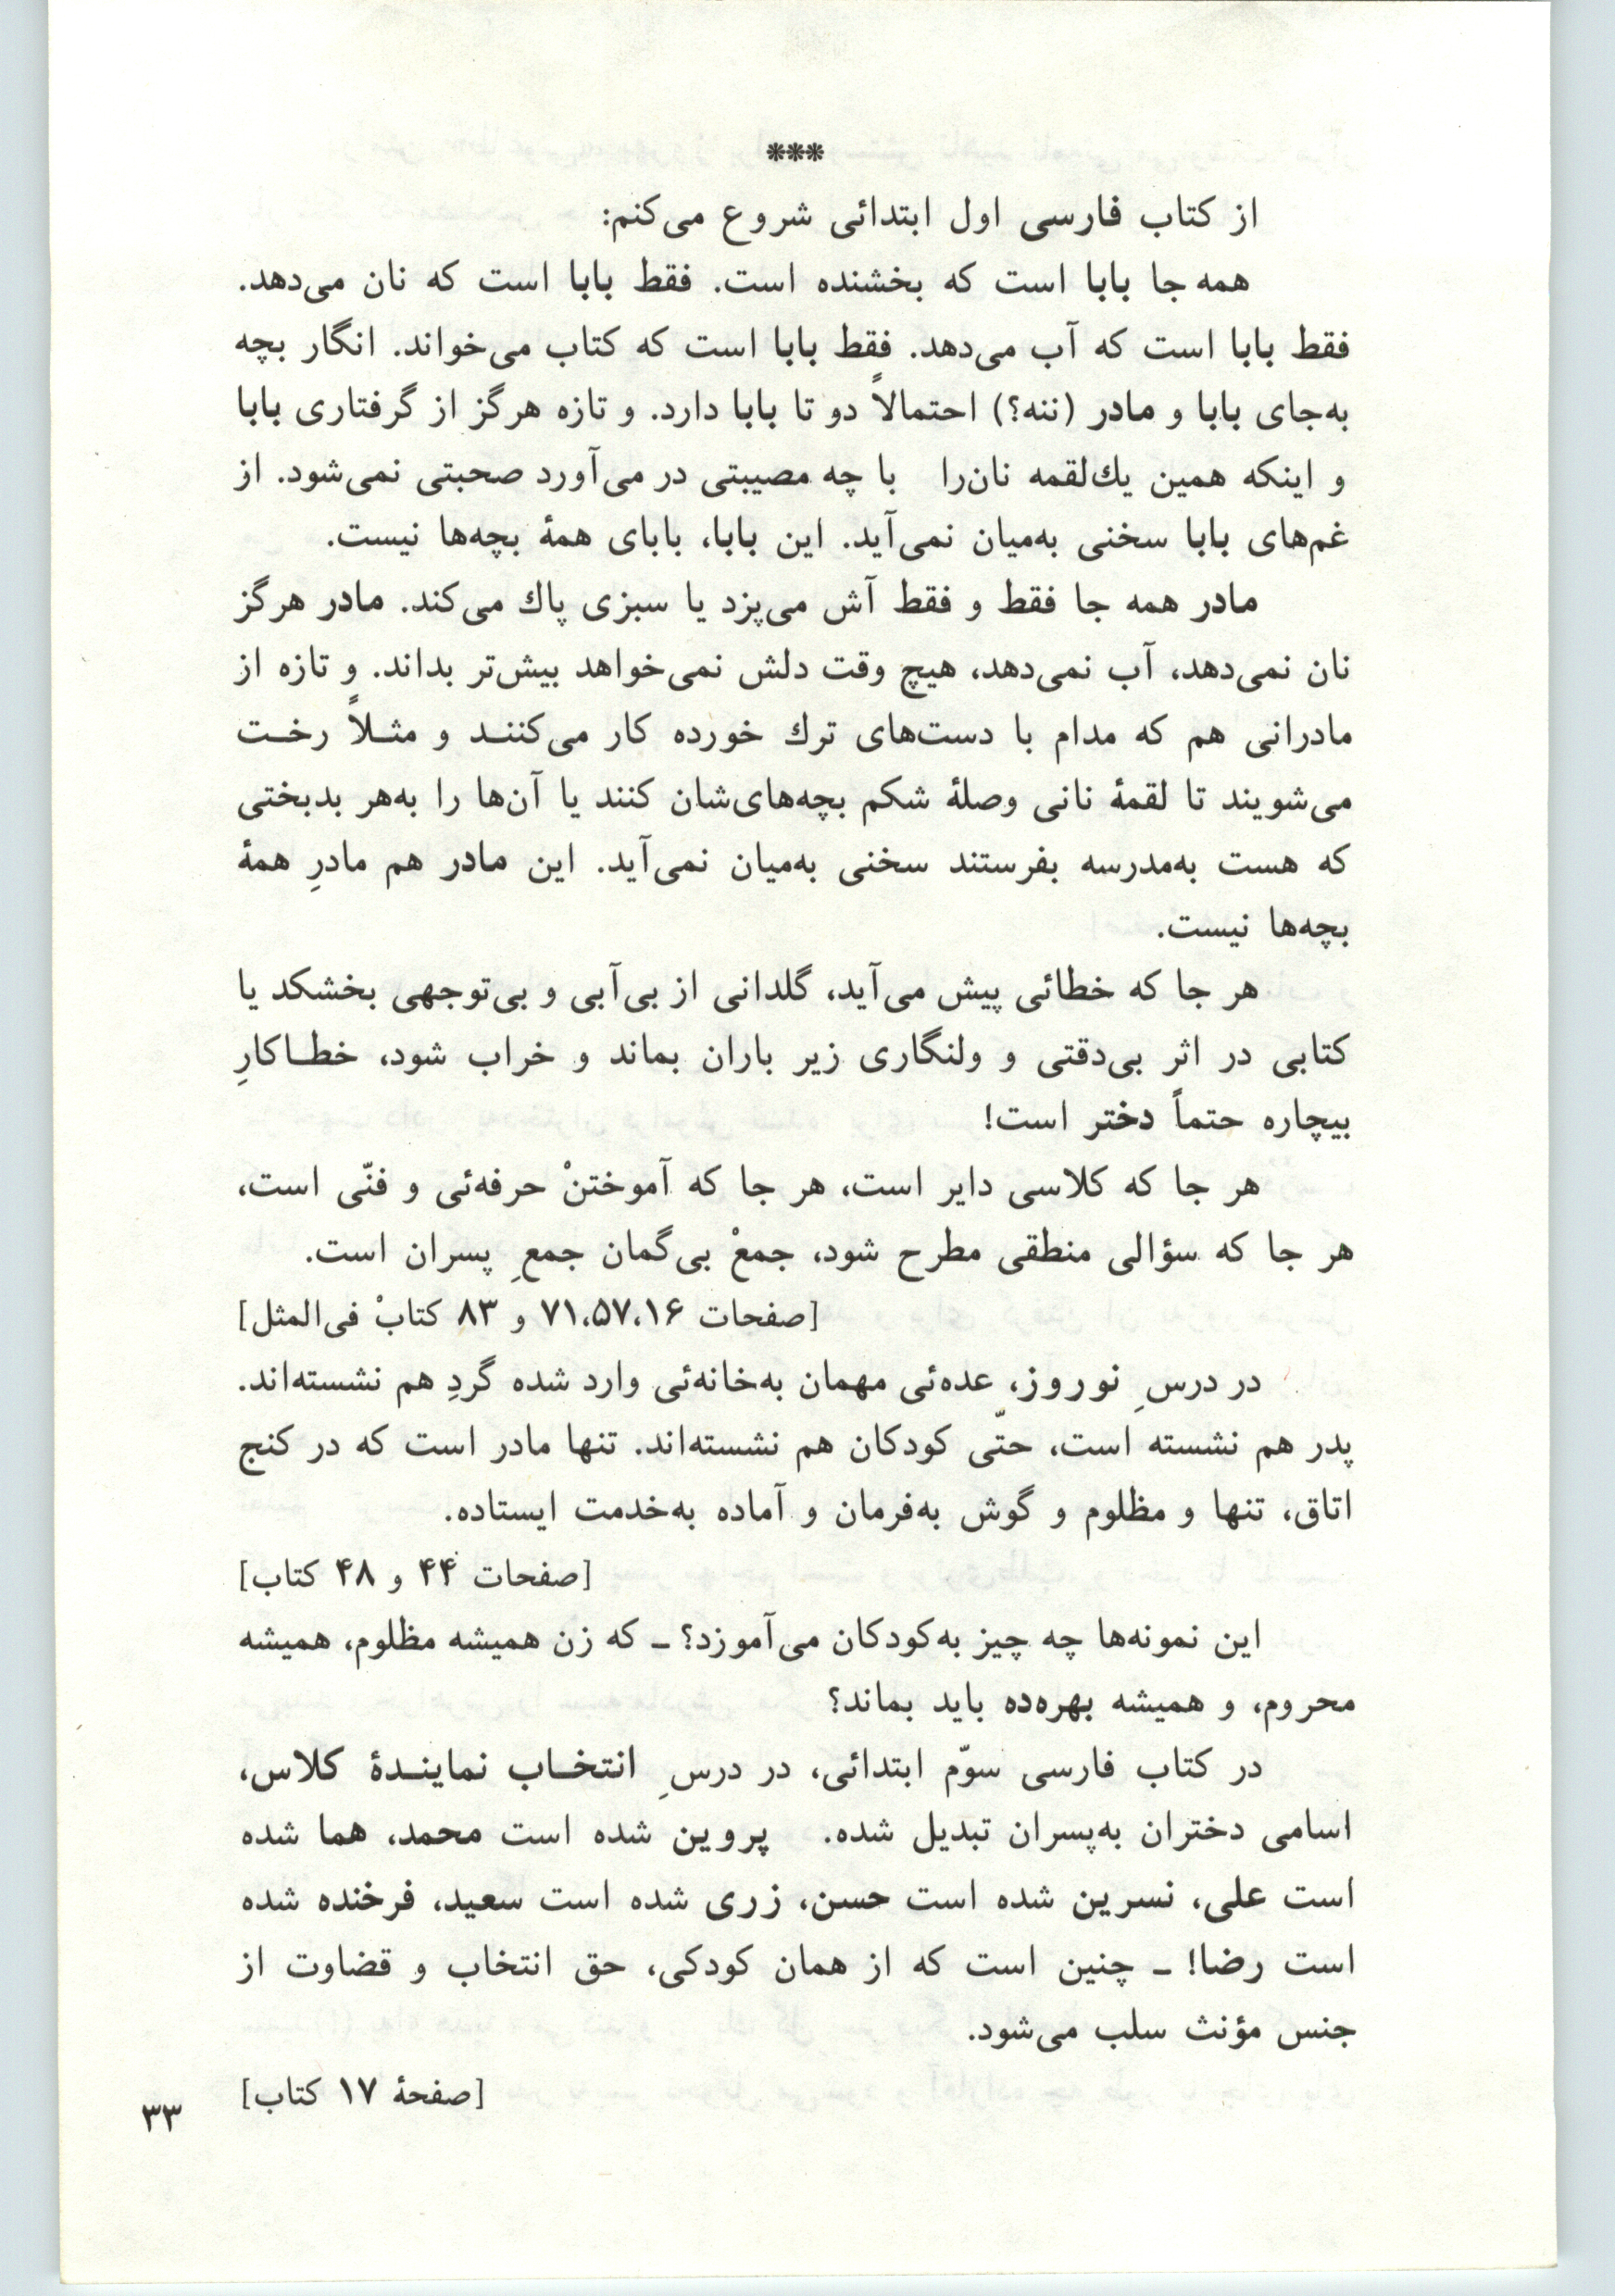 ***
از کتاب فارسی اول ابتدائی شروع می‌کنم:
همه جا بابا است که بخشنده است. فقط بابا است که نان می‌دهد.
فقط بابا است که آب می‌دهد. فقط بابا است که کتاب می‌خواند. انگار بچه
به‌جای بابا و مادر (ننه؟) احتمالاً دو تا بابا دارد. و تازه هرگز از گرفتاری بابا
و اینکه همین یك‌لقمه نان‌را با چه مصیبتی در می‌آورد صحبتی نمی‌شود. از
غم‌های بابا سخنی به‌میان نمی‌آید. این بابا، بابای همهٔ بچه‌ها نیست.
مادر همه جا فقط و فقط آش می‌پزد یا سبزی پاك می‌کند. مادر هرگز
نان نمی‌دهد، آب نمی‌دهد، هیچ وقت دلش نمی‌خواهد بیش‌تر بداند. و تازه از
مادرانی هم که مدام با دست‌های ترك خورده کار می‌کننـد و مثـلاً رخـت
می‌شویند تا لقمهٔ نانی وصلهٔ شکم بچه‌های‌شان کنند یا آن‌ها را به‌هر بدبختی
که هست به‌مدرسه بفرستند سخنی به‌میان نمی‌آید. این مادر هم مادرِ همهٔ
بچه‌ها نیست.
هر جا که خطائی پیش می‌آید، گلدانی از بی‌آبی و بی‌توجهی بخشکد یا
کتابی در اثر بی‌دقتی و ولنگاری زیر باران بماند و خراب شود، خطـاکارِ
بیچاره حتماً دختر است!
هر جا که کلاسی دایر است، هر جا که آموختنْ حرفه‌ئی و فنّی است،
هر جا که سؤالی منطقی مطرح شود، جمعْ بی‌گمان جمعِ پسران است.
[صفحات ۷۱،۵۷،۱۶ و ۸۳ کتابْ فی‌المثل]
در درسِ نوروز، عده‌ئی مهمان به‌خانه‌ئی وارد شده گردِ هم نشسته‌اند.
پدر هم نشسته است، حتّی کودکان هم نشسته‌اند. تنها مادر است که در کنج
اتاق، تنها و مظلوم و گوش به‌فرمان و آماده به‌خدمت ایستاده.
[صفحات ۴۴ و ۴۸ کتاب]
این نمونه‌ها چه چیز به‌کودکان می‌آموزد؟ ـ که زن همیشه مظلوم، همیشه
محروم، و همیشه بهره‌ده باید بماند؟
در کتاب فارسی سوّم ابتدائی، در درسِ انتخـاب نماینـدهٔ کلاس،
اسامی دختران به‌پسران تبدیل شده. پروین شده است محمد، هما شده
است علی، نسرین شده است حسن، زری شده است سعید، فرخنده شده
است رضا! ـ چنین است که از همان کودکی، حق انتخاب و قضاوت از
جنس مؤنث سلب می‌شود.
[صفحهٔ ۱۷ کتاب]
۳۳